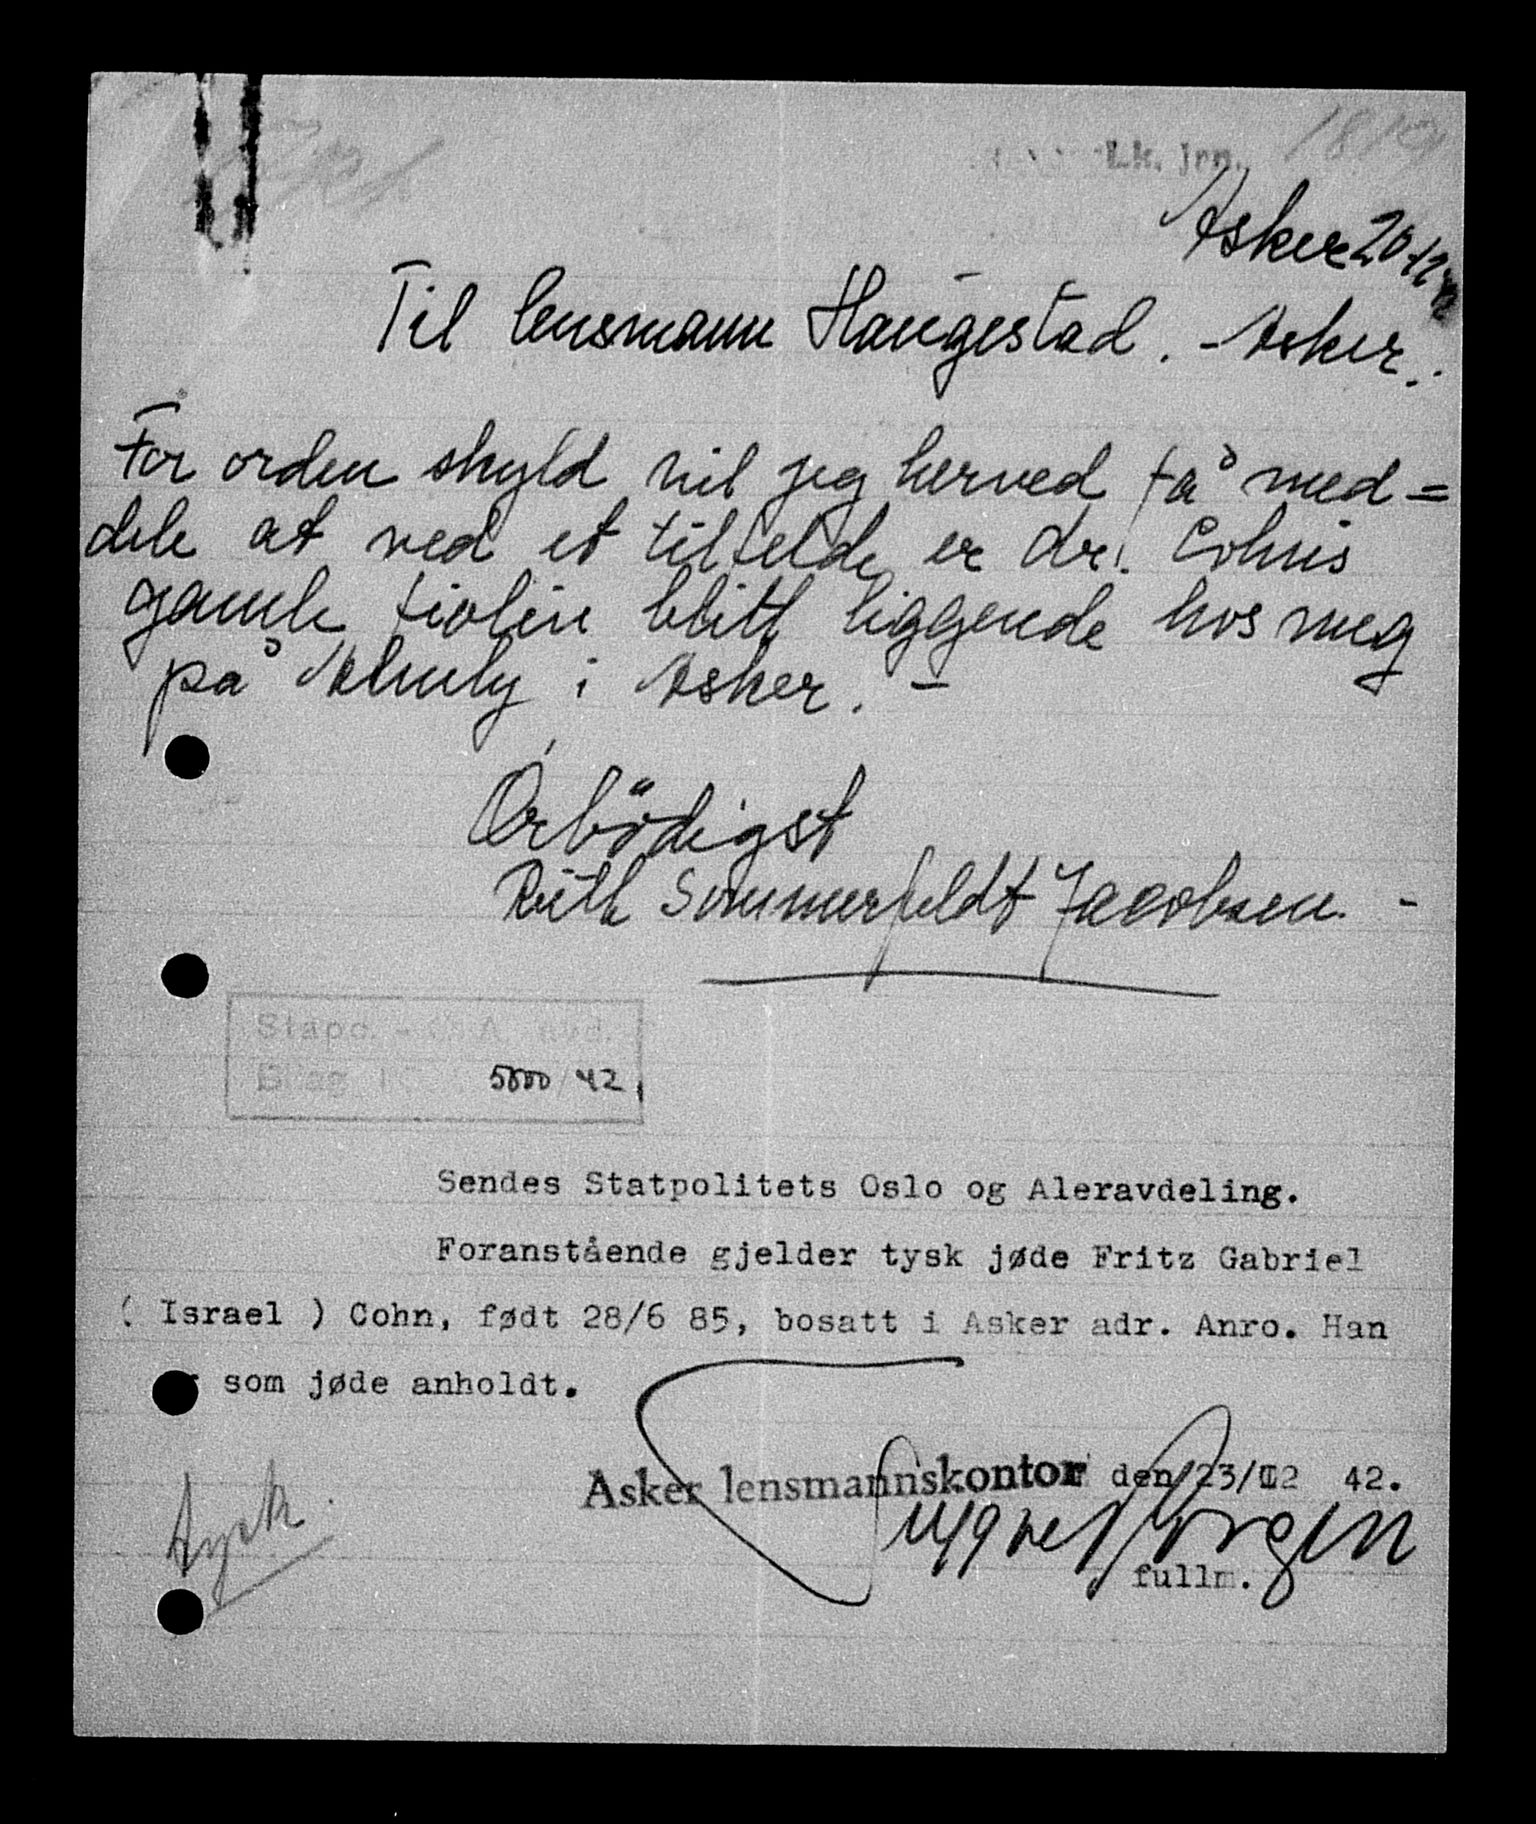 Lk. jrn. 1819
Asker 20-12-42
Til lensmann Haugestad. - Asker.
For orden skyld vil jeg herved få med=
dele at ved et tilfelde er dr. Cohns
gamle fiolin blitt liggende hos meg
på Almely i Asker. -
Örbödigst
Ruth Sommerfeldt Jacobsen. -
Stapo. - avd.
Bilag 5800/42
Sendes Statpolitets Oslo og Aleravdeling.
Foranstående gjelder tysk jøde Fritz Gabriel
( Israel ) Cohn, født 28/6 85, bosatt i Asker adr. Anro. Han
som jøde anholdt.
Asker lensmannskontor den 23/12 42.
fullm.